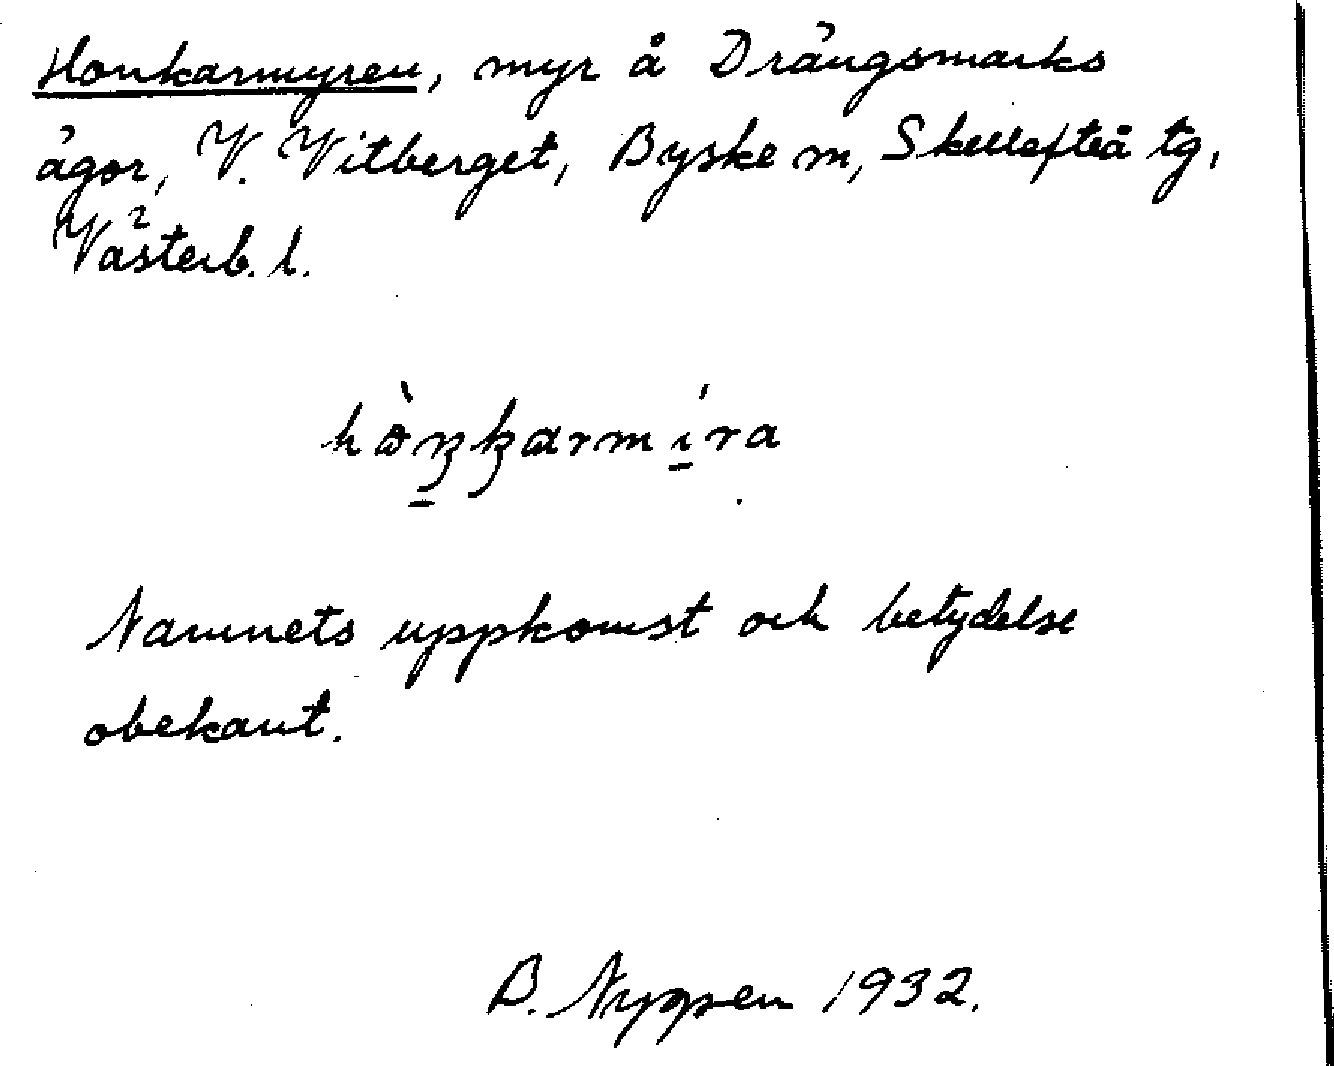 Honkarmyren, myr å Drängsmarks
ägor, V. Vitberget, Byske m, Skellefteå tg,
Västerb. l.
Namnets uppkomst och betydelse
obekant.
B. Nygren 1932.